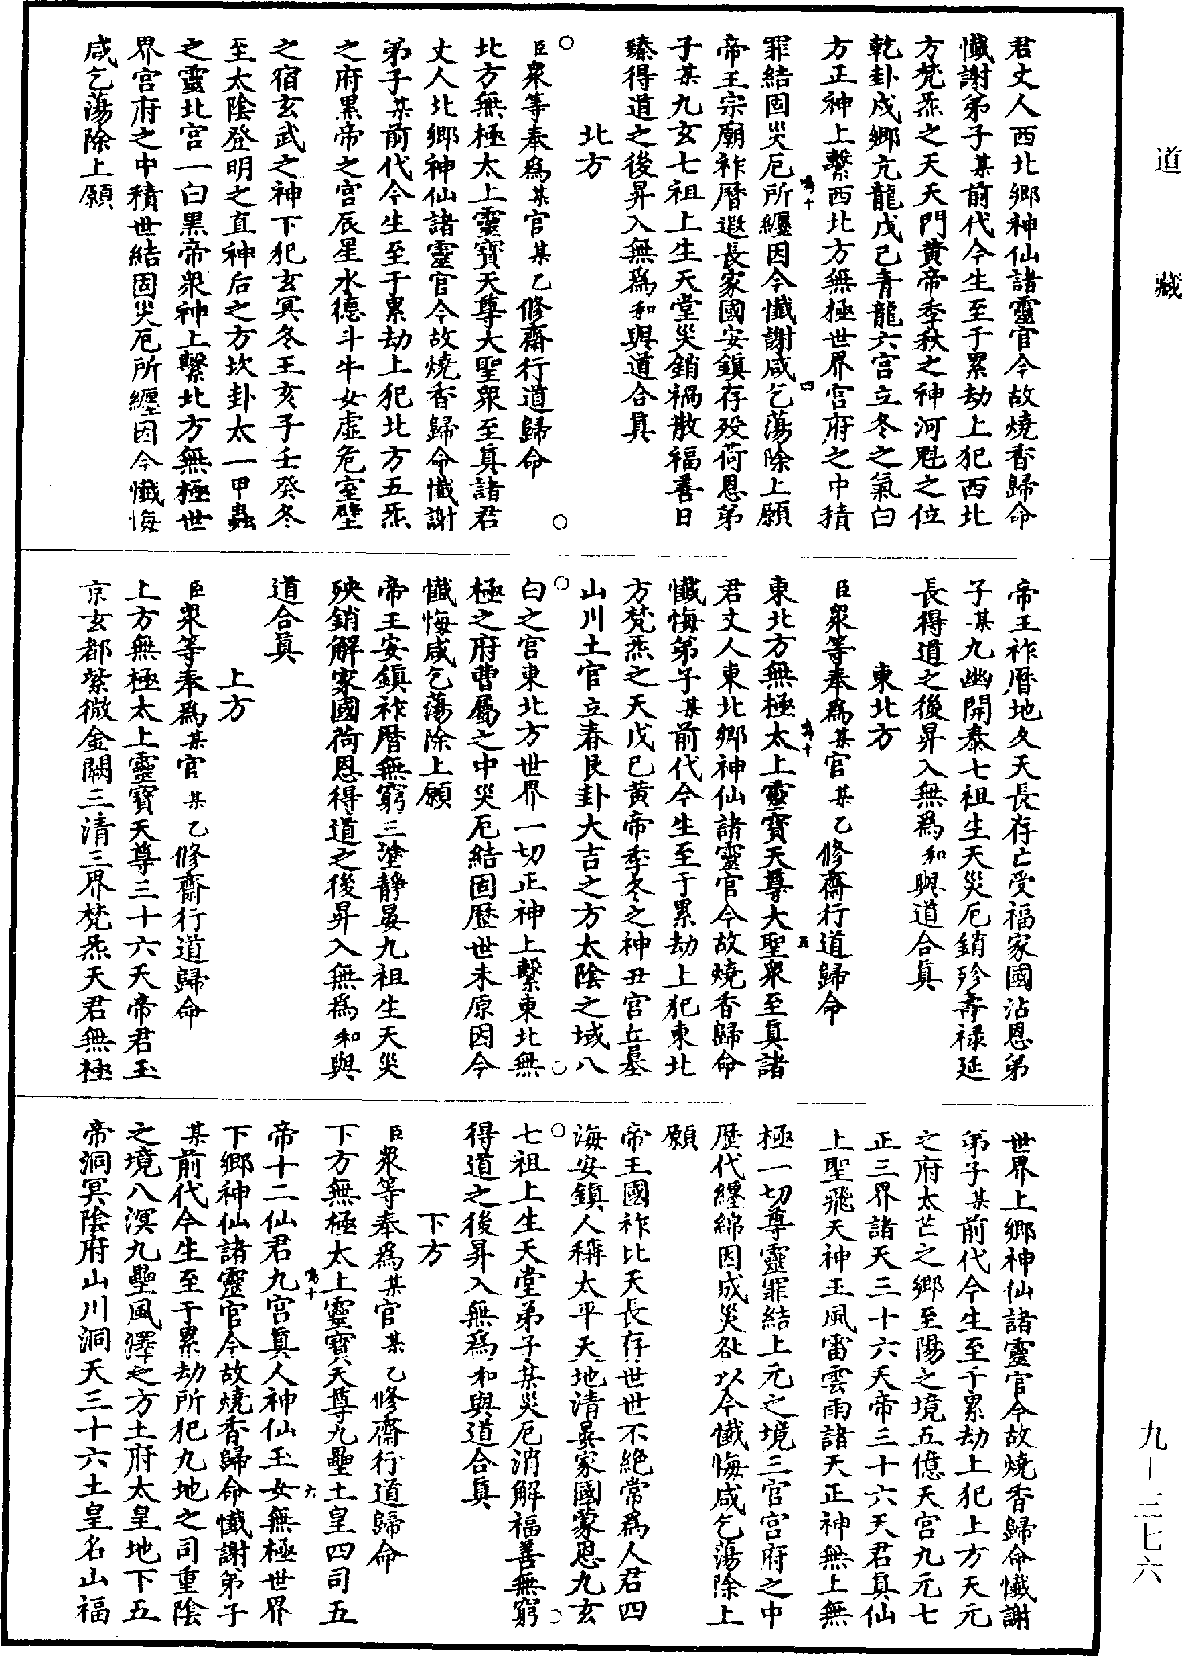 道藏
君丈人西北鄉神仙諸靈官今故燒香歸命
懺謝弟子某前代今生至于累劫上犯西北
方梵炁之天天門黃帝季秋之神河魁之位
乾卦戌鄉亢龍戊己青龍六宮立冬之氣白
方正神上繫西北方無極世界宮府之中積
罪結固災厄所纏因今懺謝咸乞蕩除上願
帝王宗廟祚曆遐長家國安鎮存歿荷恩弟
子某九玄七祖上生天堂災銷禍散福善日
臻得道之後昇入無為和與道合真
北方
臣衆等奉為某官某乙修齋行道歸命
北方無極太上靈寶天尊大聖衆至真諸君
丈人北鄉神仙諸靈官今故燒香歸命懺謝
弟子某前代今生至于累劫上犯北方五炁
之府黑帝之宮辰星水德斗牛女虛危室壁
之宿玄武之神下犯玄冥冬王亥子壬癸冬
至太陰登明之直神后之方坎卦太一甲蟲
之靈北宮一白黑帝衆神上繫北方無極世
界宮府之中積世結固災厄所纏因今懺悔
咸乞蕩除上願
帝王祚曆地久天長存亡受福家國沾恩弟
子某九幽開泰七祖生天災厄銷殄壽祿延
長得道之後昇入無為和與道合真
東北方
臣衆等奉為某官某乙修齋行道歸命
東北方無極太上靈寶天尊大聖衆至真諸
君丈人東北鄉神仙諸靈官今故燒香歸命
懺悔弟子某前代今生至于累劫上犯東北
方梵炁之天戊己黃帝季冬之神丑宮丘墓
山川土官立春艮卦大吉之方太陰之域八
白之宮東北方世界一切正神上繫東北無
極之府曹屬之中災厄結固歷世未原因今
懺悔咸乞蕩除上願
帝王安鎮祚曆無窮三塗靜晏九祖生天災
殃銷解家國荷恩得道之後昇入無為和與
道合真
上方
臣衆等奉為某官某乙修齋行道歸命
上方無極太上靈寶天尊三十六天帝君玉
京玄都紫微金闕三清三界梵炁天君無極
世界上鄉神仙諸靈官今故燒香歸命懺謝
弟子某前代今生至于累劫上犯上方天元
之府太芒之鄉至陽之境五億天宮九元七
正三界諸天三十六天帝三十六天君真仙
上聖飛天神王風雷雲雨諸天正神無上無
極一切尊靈罪結上元之境三官宮府之中
歷代纏綿因成災咎以今懺悔咸乞蕩除上
願
帝王國祚比天長存世世不絕常為人君四
海安鎮人稱太平天地清晏家國蒙恩九玄
七祖上生天堂弟子某災厄消解福善無窮
得道之後昇入無為和與道合真
下方
臣衆等奉為某官某乙修齋行道歸命
下方無極太上靈寶天尊九壘土皇四司五
帝十二仙君九宮真人神仙玉女無極世界
下鄉神仙諸靈官今故燒香歸命懺謝弟子
某前代今生至于累劫所犯九地之司重陰
之境八溟九壘風澤之方土府太皇地下五
帝洞冥陰府山川洞天三十六土皇名山福
九－三七六